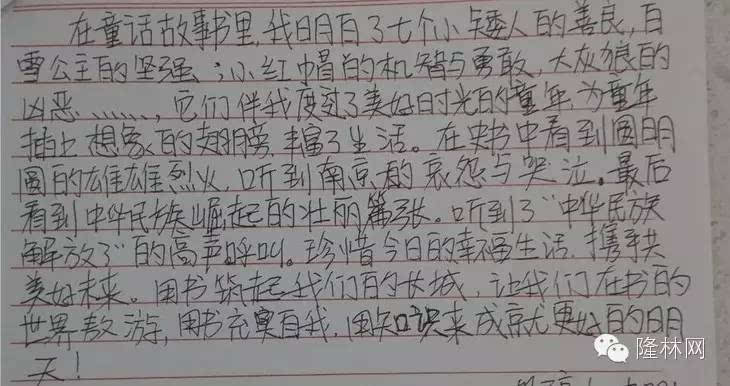 在童话故事书里,我明白了七个小矮人的善良,白
雪公主的坚强;小红帽的机智与勇敢,大灰狼的
凶恶……,它们伴我度过了美好时光的童年,为童年
插上想象的翅膀,丰富了生活。在史书中看到圆明
圆的雄雄烈火,听到南京的哀怨与哭泣。最后
看到中华民族崛起的壮丽篇张。听到了"中华民族
解放了"的高声呼叫。珍惜今日的幸福生活,携手共
美好未来。用书筑起我们的长城,让我们在书的
世界敖游,用书充实自我,用知识来成就更好的明
天!
隆林网